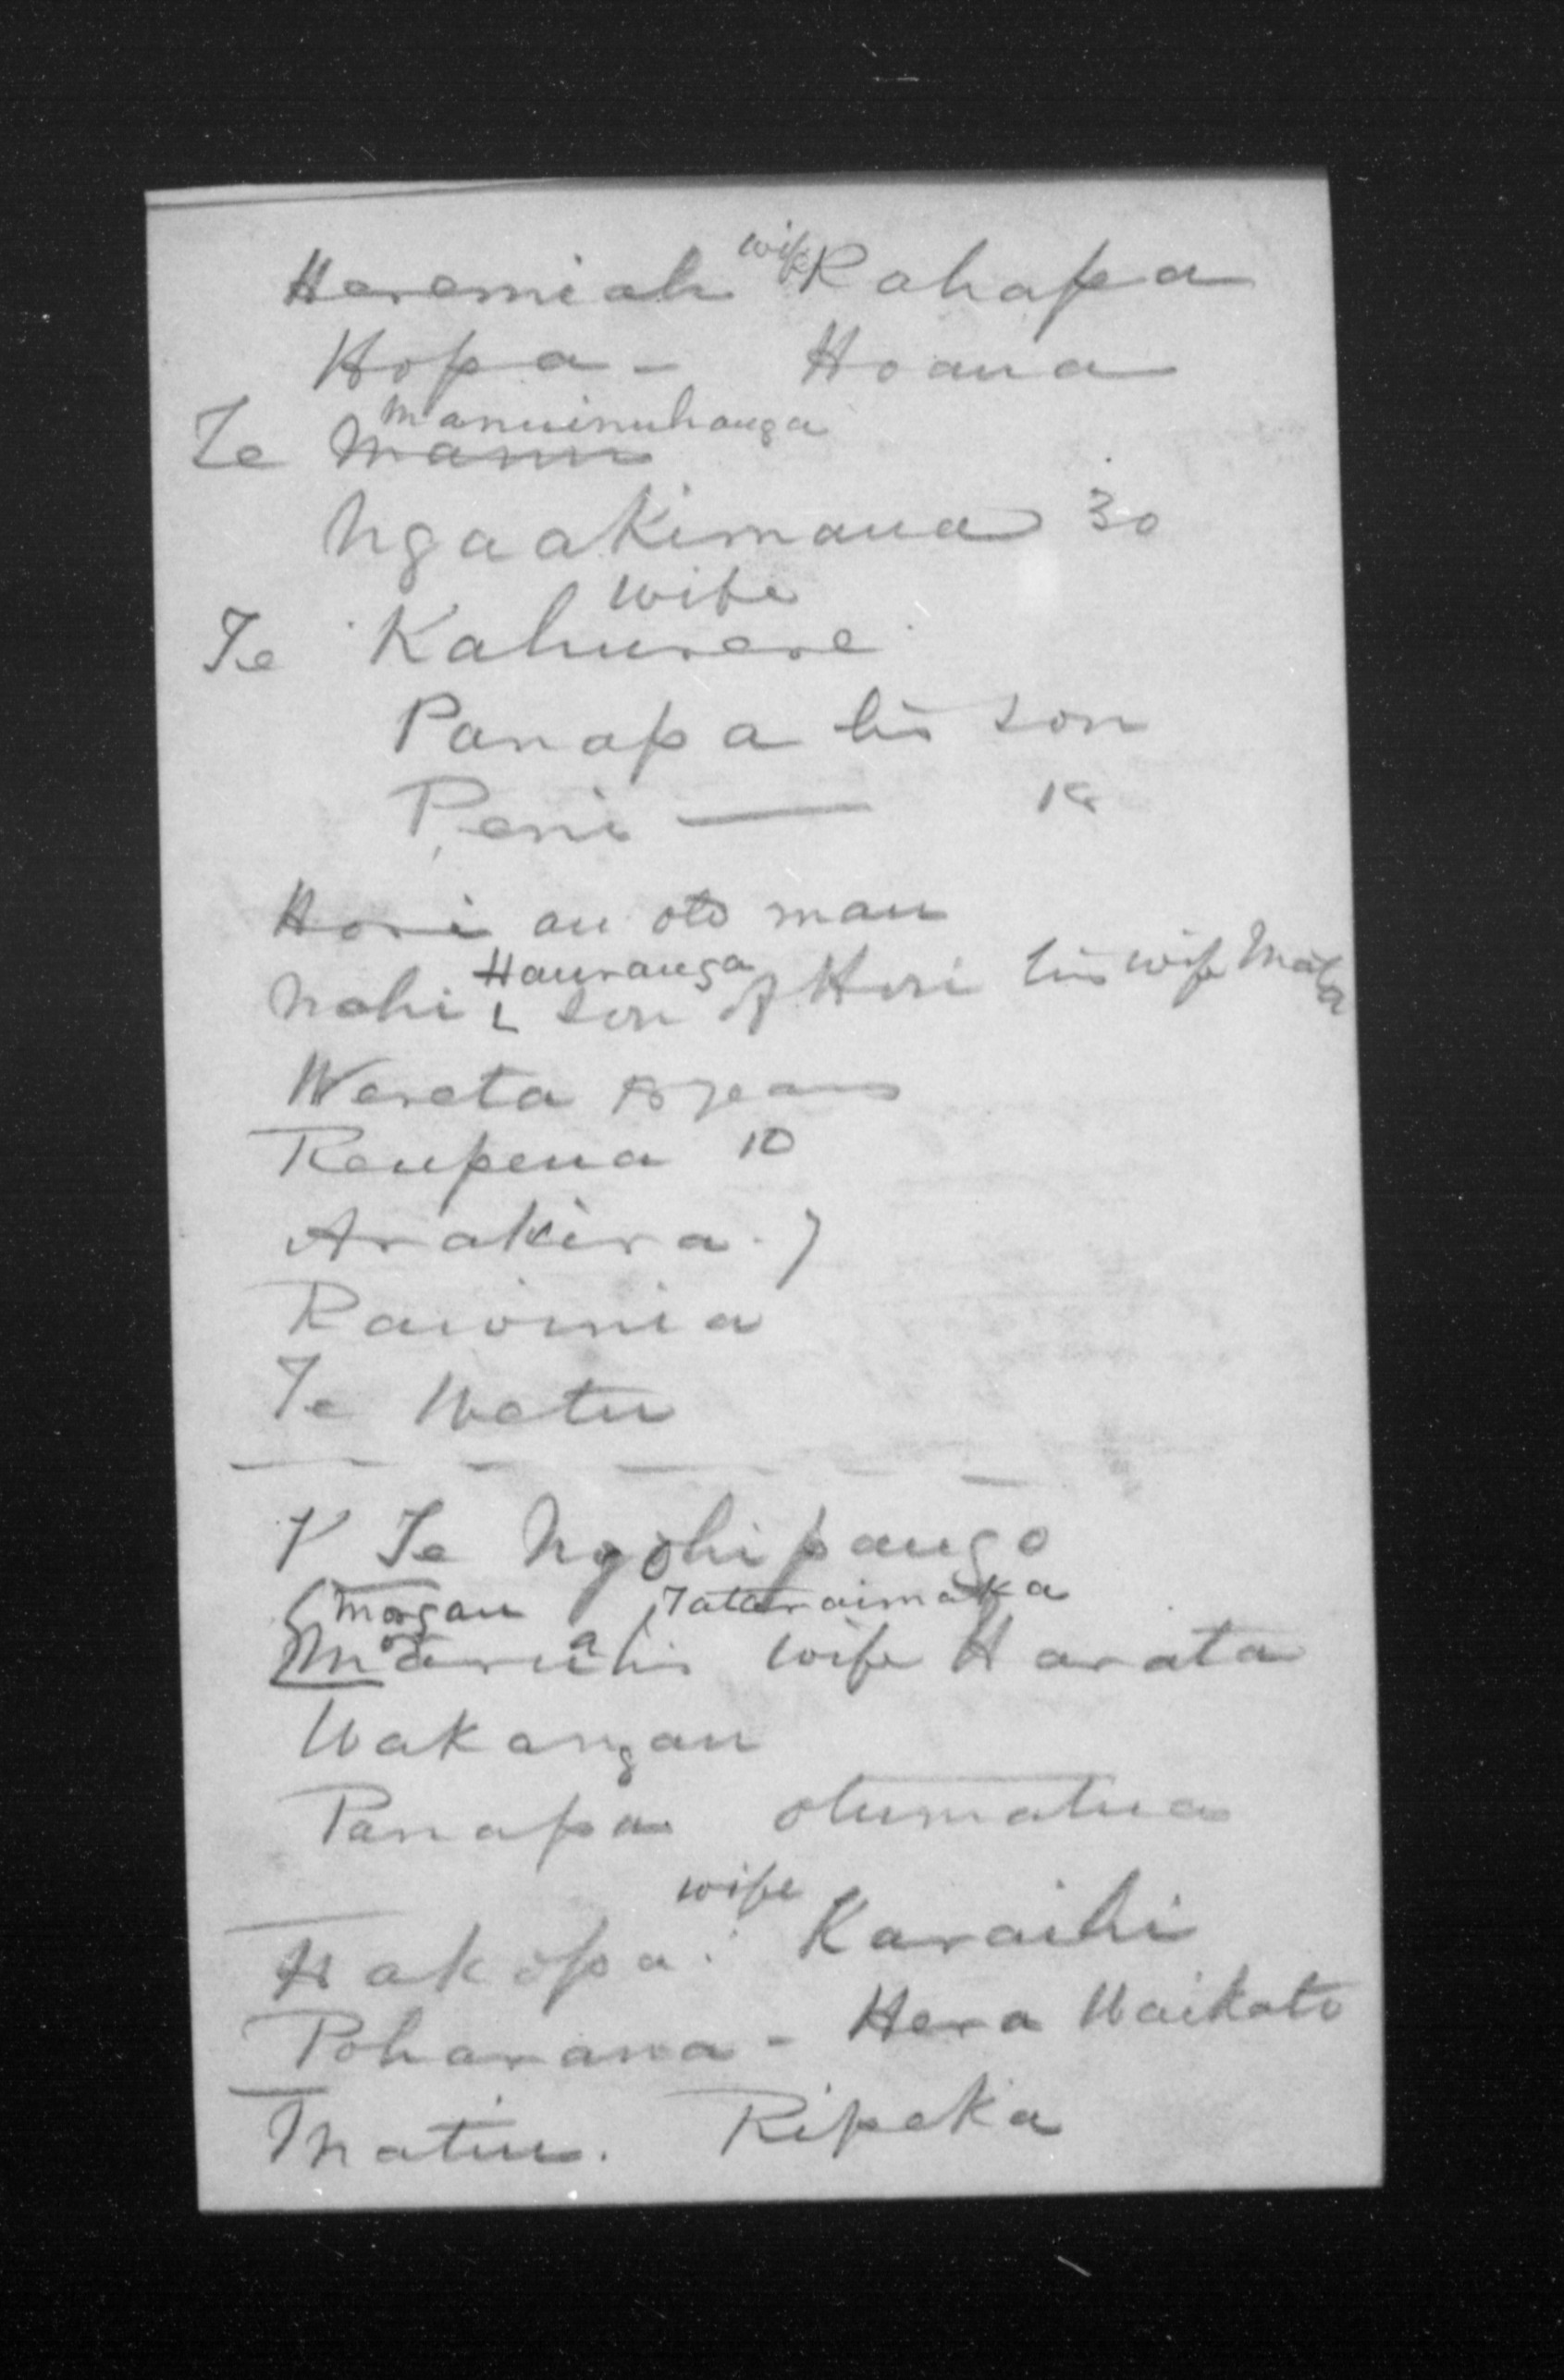 Heremiah wife Rahapa
Hopa - Hoana
Manuinuhauga
Te Manu
Ngaakimaua 30
wife
Te Kahurere
Panapa his son
Peni — 18
Hori an old man
Hauranga
Nohi son of Hori his wife Mata
Wereta years
Reupena 10
Arakira . 7
Te Watu
Te Ngohi pango
Morgan Tataraimaka
his wife Harata
Wakangau
Panapa otumatua
wife
Hakopa. Karaihi
Poharama - Hera Waikato
Matiu. Ripeka